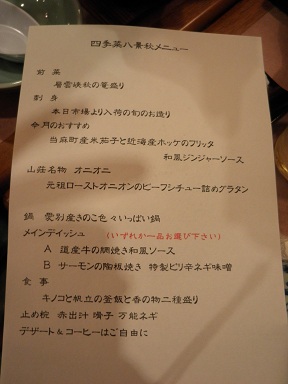 四季菜八景秋メニュー
前菜
層雲峡秋の竜盛り
割身
本日市場より入荷の旬のお造り
今月のおすすめ
当麻町産米茄子と近海産ホッケのフリッタ
和風ジンジャーソース
山荘名物 オニオニ
元祖ローストオニオンのビーフシチュー詰めグラタン
鍋 愛別産きのこ色々いっぱい鍋
メインディッシュ (いずれか一品お選び下さい)
A 道産牛の網焼き和風ソース
B サーモンの陶板焼き 特製ピリ辛ネギ味噌
食事
キノコと帆立の釜飯と香の物二種盛り
止め椀 赤出汁 滑子 万能ネギ
デザート&コーヒーはご自由に